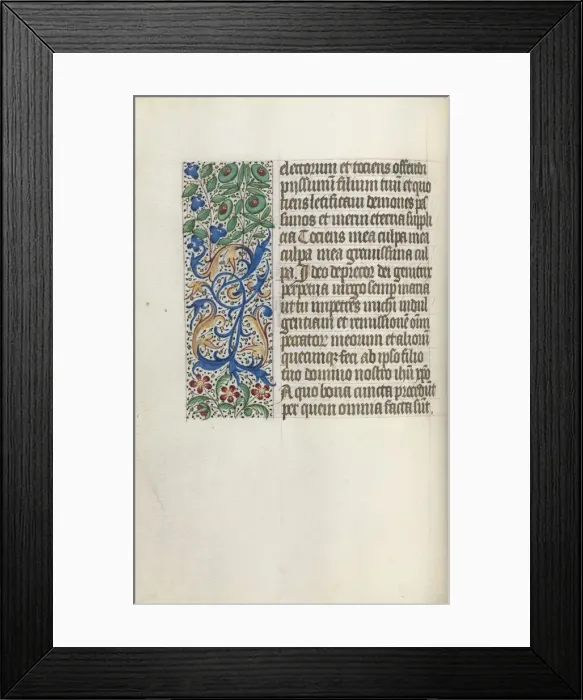 electorum et tociens offendi
piissimū filium tuū et quo
tiens letificaui demones pes
simos et merui eterna suppli
cia Tociens mea culpa mea
culpa mea grauissima cul
pa. Ideo deprecor dei genitrix
perpetua uirgo semper maria
ut tu impetres michi indul
gentiam et remissionē omī
peccatorū meorum et alioru
que umqz feci ab ipso filio
tuo domino nostro ihū xpō
A quo bona cuncta procedūt
per quem omnia facta sūt.